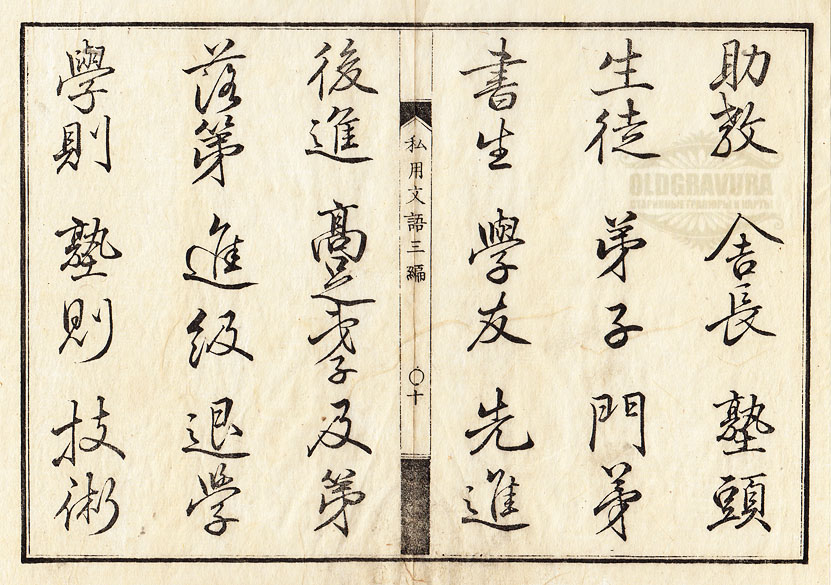 助教 舎長 塾頭
生徒 弟子 門弟
書生 學友 先進
私用文語三編
〇十
後進 高足弟子 及第
落第 進級 退学
學則 塾則 技術
OLDGRAVURA
СТАРИННЫЕ ГРАВЮРЫ И КАРТЫ